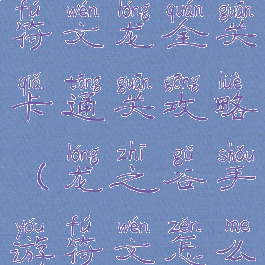 fú wén lóng quán guān
符文龙全关
qiǎ tōng guān gōng lüè
卡通关攻略
lóng zhī gǔ shǒu
(龙之谷手
yóu fú wén zěn me
游符文怎么